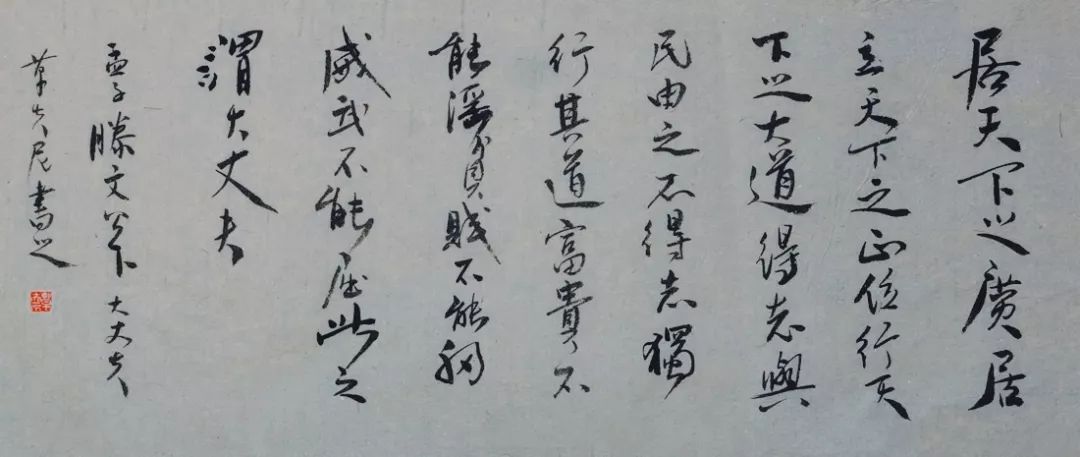 居天下之廣居
立天下之正位行天
下之大道得志與
民由之不得志獨
行其道富貴不
能淫貧賤不能移
威武不能屈此之
謂大丈夫
孟子滕文公下 大丈夫
書之